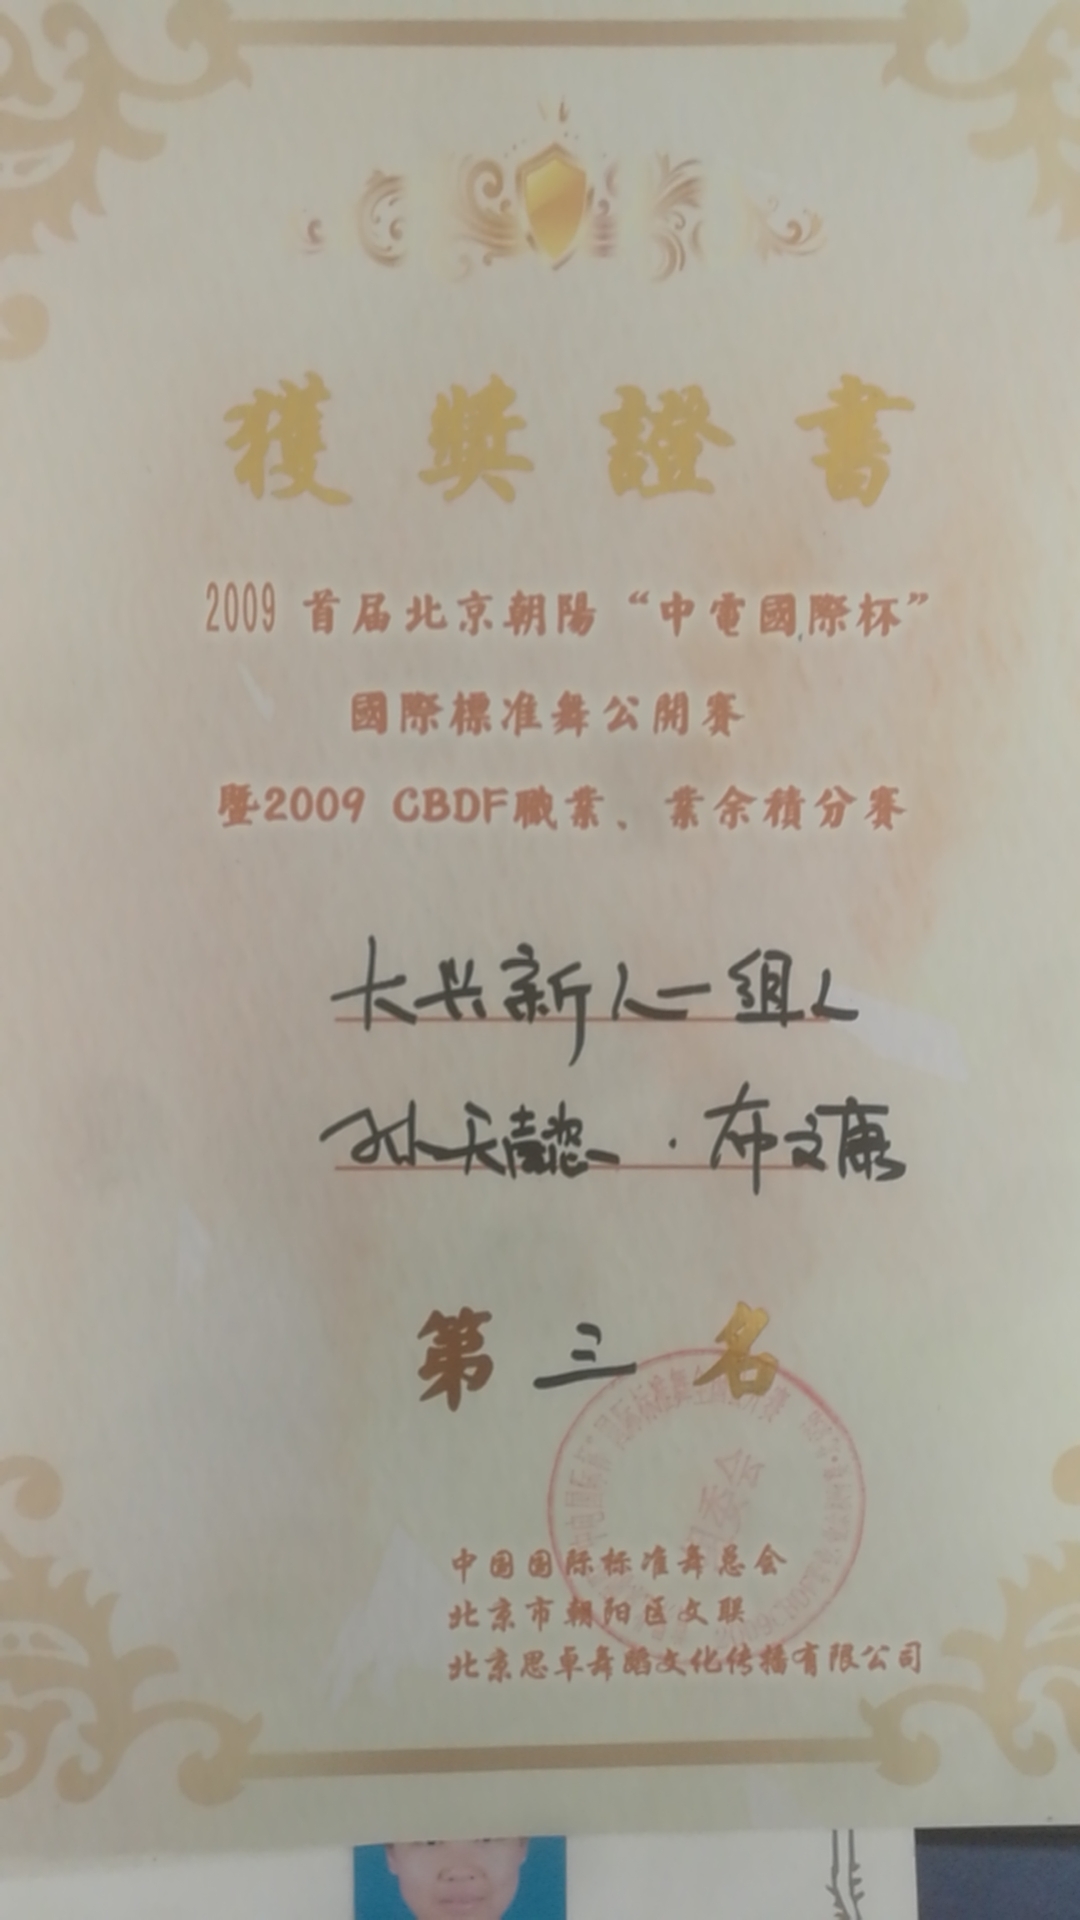 獲獎證書
2009 首届北京朝陽“中電國際杯”
國際標准舞公開賽
暨2009 CBDF職業、業余積分賽
大兴新人一组L
孙天懿 · 布文康
第三名
中国国际标准舞总会
北京市朝阳区文联
北京思卓舞蹈文化传播有限公司